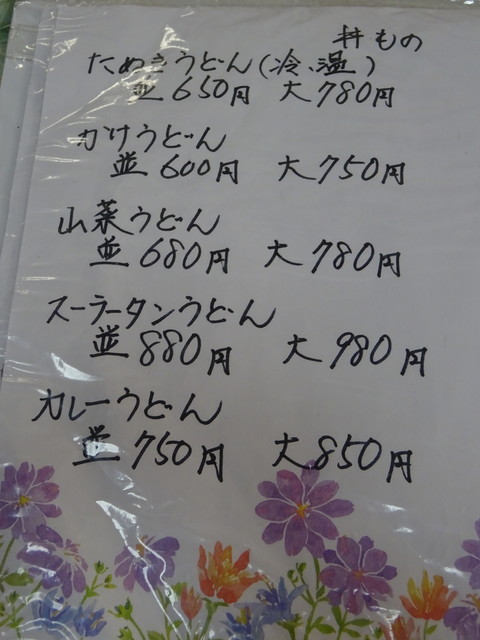 丼もの
たぬきうどん(冷、温)
並650円 大780円
かけうどん
並600円 大750円
山菜うどん
並680円 大780円
スーラータンうどん
並880円 大980円
カレーうどん
並750円 大850円